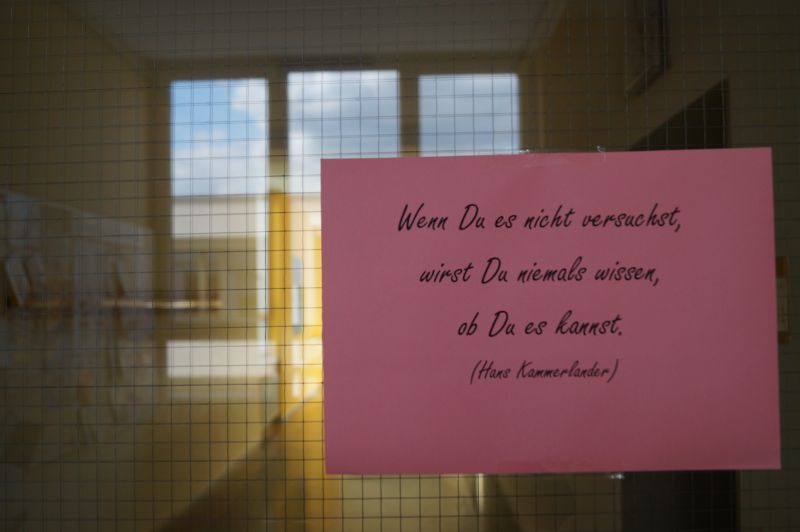 Wenn Du es nicht versuchst,
wirst Du niemals wissen,
ob Du es kannst.
(Hans Kammerlander)